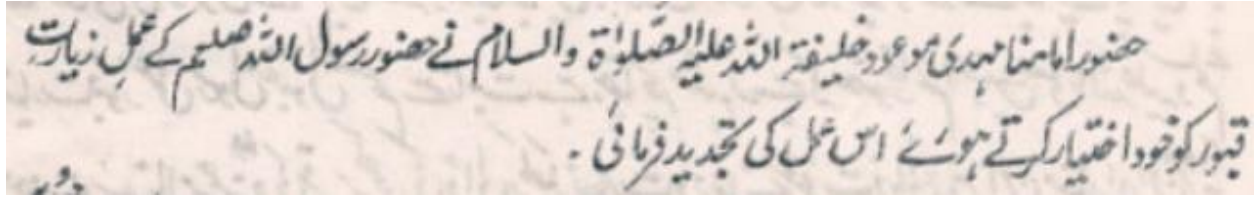 حضور امامنا مہدی موعود خلیفۃ اللہ علیہ الصلواۃ والسلام نے حضور رسول اللہ صلعم کے عمل زیارت
قبور کو خود اختیار کرتے ہوئے اس عمل کی تجدید فرمائی ۔